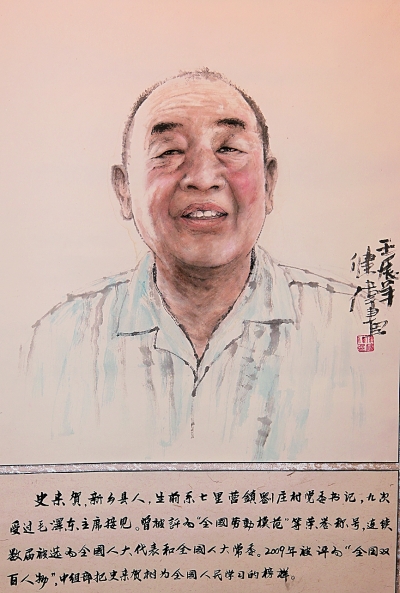 壬辰年
健偉画
史来賀,新乡县人,生前系七里营鎮劉庄村党委书记,九次
受过毛澤东主席接见。曾被評为"全國劳動模范"等荣誉称号,连续
数届被選为全國人大代表和全國人大常委。2009年被評为"全国双
百人物",中组部把史来贺树为全國人民学习的榜样。